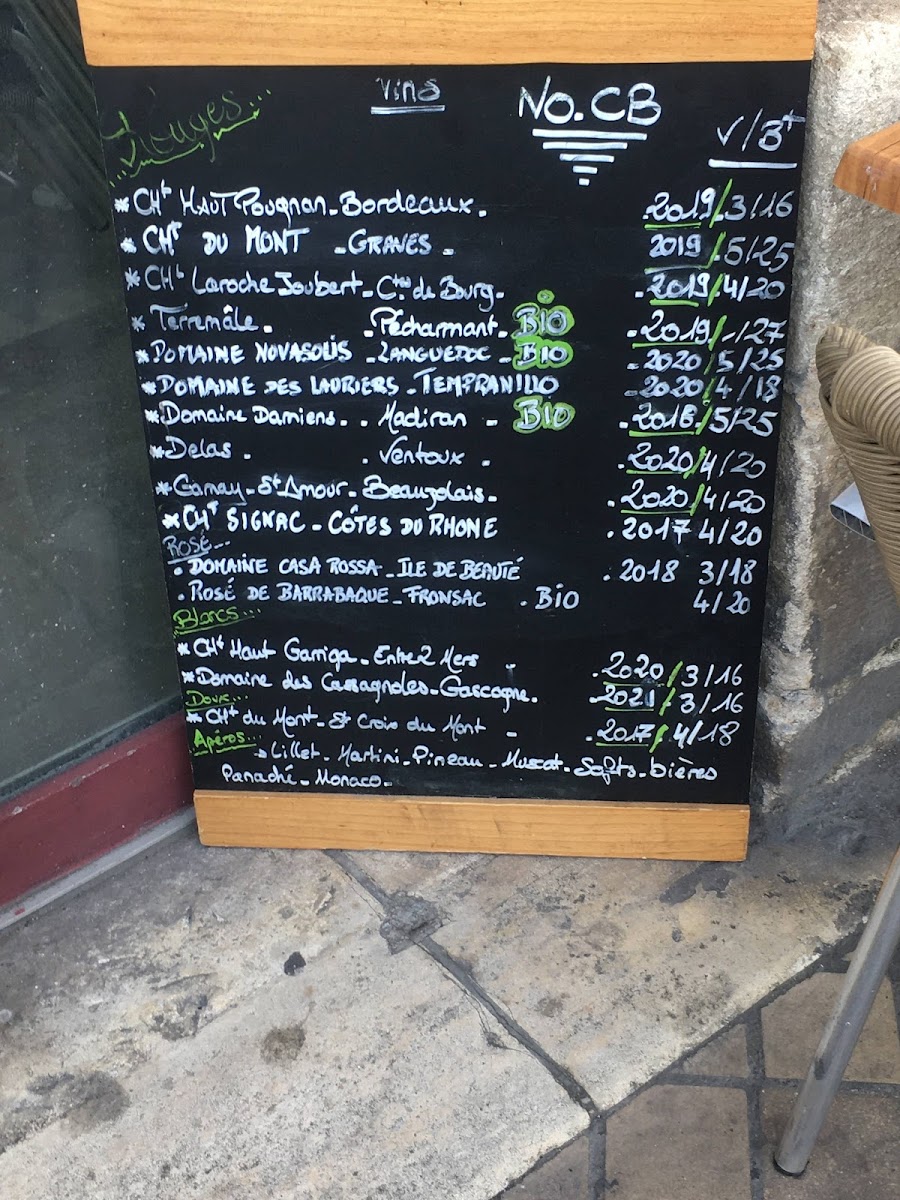 Vins
No.CB
Rouges...
V/Bt
* CHt HAUT Pougnan - Bordeaux. .2019/3/16
* CHT DU MONT - GRAVES - 2019/5/25
* CHt Laroche Joubert - Ctes de Bourg - .2019/4/20
* Terremâle. - Pécharmant - BIO - 2019/-/27
* DOMAINE NOVASOLIS - LANGUEDOC - BIO - 2020/5/25
* DOMAINE DES LAURIERS - TEMPRANILLO - 2020/4/18
* Domaine Damiens. . Madiran - BIO - 2018/5/25
* Delas . . Ventoux . .2020/4/20
* Gamay - St Amour - Beaujolais - .2020/4/20
* CHT SIGNAC - CÔTES DU RHONE .2017 4/20
ROSÉ...
. DOMAINE CASA ROSSA - ILE DE BEAUTÉ .2018 3/18
. ROSÉ DE BARRABAQUE - FRONSAC . BIO 4/20
Blancs...
* CHt Haut Garriga - Entre 2 Mers - .2020/3/16
* Domaine des Cassagnoles - Gascogne. .2021/3/16
Doux...
* CHt du Mont - St Croix du Mont - .2017/4/18
Apéros...
→ Lillet - Martini - Pineau - Muscat - Softs - bières
Panaché - Monaco -